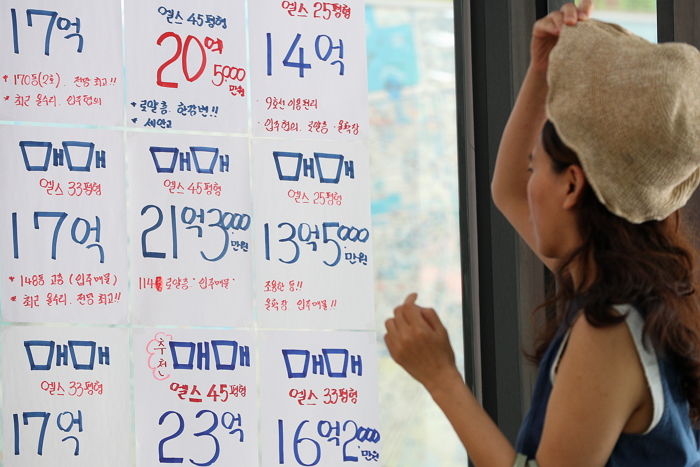 17억
* 170동(2호). 전망 최고!!
* 최근 올수리. 입주협의
엘스 45평형
20억 5000만원
* 로얄층. 한강변!!
* 세안고
엘스 25평형
14억
· 9호선 이용편리
· 입주협의. 로얄층. 올확장
매매
엘스 33평형
17억
* 148동 고층 (입주매물)
* 최근 올수리. 전망 최고!!
매매
엘스 45평형
21억3000만원
로얄층 "입주매물"
매매
엘스 25평형
13억5000만원
조용한 동!!
올확장. 입주매물!!
매매
엘스 33평형
17억
추천
매매
엘스 45평형
23억
매매
엘스 33평형
16억2000만원